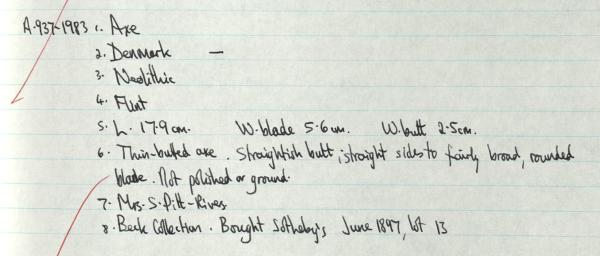 A.937-1983 1. Axe
2. Denmark —
3. Neolithic
4. Flint
5. L. 17.9cm. W. blade 5.6cm. W. butt 2.5cm.
6. Thin-butted axe. Straightish butt, straight sides to fairly broad, rounded
blade. Not polished or ground.
7. Mrs. S. Pitt-Rivers
8. Beck Collection. Bought Sotheby's June 1897, lot 13